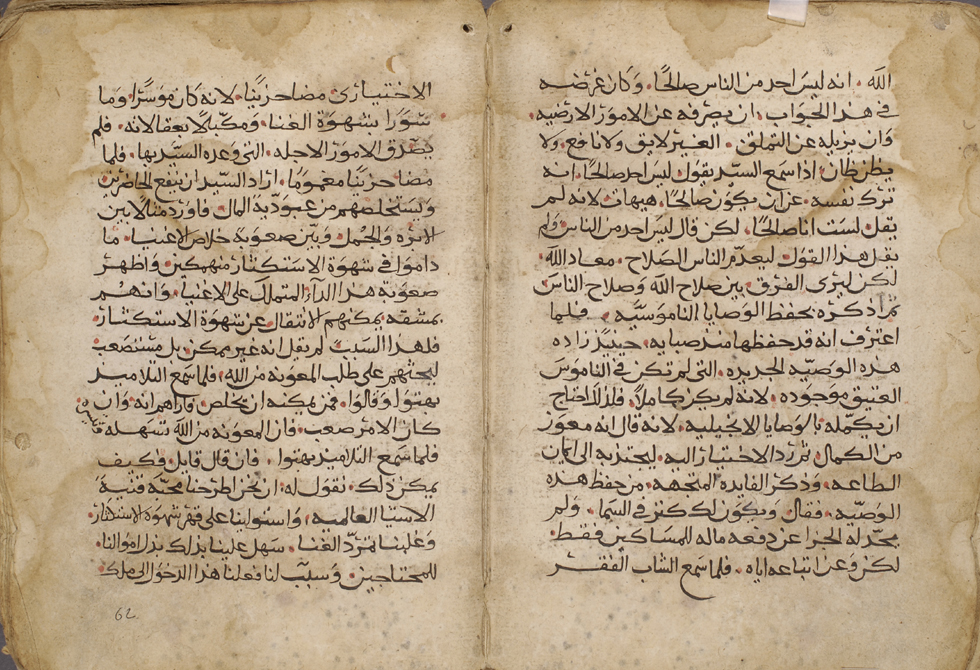 الله . انه ليس احد من الناس صالحًا . وكان غرضه
في هذا الجواب . ان يصرفه عن الامور الارضيه .
وان يزيله عن التملق . الغير لايق ولا نافع . ولا
يظن ظان . اذا سمع السيد يقول ليس احد صالحًا . انه
ترك نفسه . عن ان يكون صالحًا . هيهات لانه لم
يقل لست انا صالحًا . لكن قال ليس احد من الناس ولم
يقل هذا القول ليعدم الناس الصلاح . معاد الله .
لكن ليرى الفرق بين صلاح الله وصلاح الناس
ثم اذكره بحفظ الوصايا الناموسيه . فلما
اعترف انه قد حفظها منذ صبايه . حينيذ زاده
هذه الوصيه الجديده . التي لم تكن في الناموس
العتيق موجوده . لانه لم يكن كاملاً . فلذلك احتاج
ان يكمله بالوصايا الانجيليه . لانه قال انه معوز
من الكمال . ثم رد الاختيار اليه . ليجتذبه الى
الطاعه . وذكر الفايده المتجهه . من حفظ هذه
الوصيه . فقال ويكون لك كنز في السما . ولم
يحد له الجزا عن دفعه ماله للمساكين فقط .
لكن وعن اتباعه اياه . فلما سمع الشاب الفقر
الاختياري . مضا حزينًا . لانه كان موسرًا . وما
سورا بشهوة الغنا . ومكبلا بعقالاته . فلم
يصدق الامور الاجله . التي وعده السيد بها . فلما
مضا حزينًا مغمومًا . اراد السيد ان ينفع الحاضرين
وليستخلصهم من عبودية المال . فاورد مثالا بين
الابره والجمل . وبين صعوبة خلاص الاغنيا . ما
داموا في شهوة الاستكثار منهمكين . واظهر
صعوبة هذا الدآء المتملك على الاغنيا . وانهم
بمشقه يمكنهم الانتقال عن شهوة الاستكثار .
فلهذا السبب لم يقل انه غير ممكن . بل مستصعب
ليحثهم على طلب المعونه من الله . فلما سمع التلاميذ
بهتوا وقالوا . فمن يمكنه ان يخلص . فاراهم انه وان
كان الامر صعب . فان المعونه من الله تسهله
فلما سمع التلاميذ بهتوا . فان قال قايل وكيف
يمكن ذلك . نقول له . ان نحن اطرحنا محبة قنية
الاشيا العالميه . واستولينا على قهر شهوة الاستكثار
وغلبنا تمرد الغنا . سهل علينا بذلك بذل اموالنا .
للمحتاجين . وسبب لنا فعلنا هذا الدخول الى ملك
62